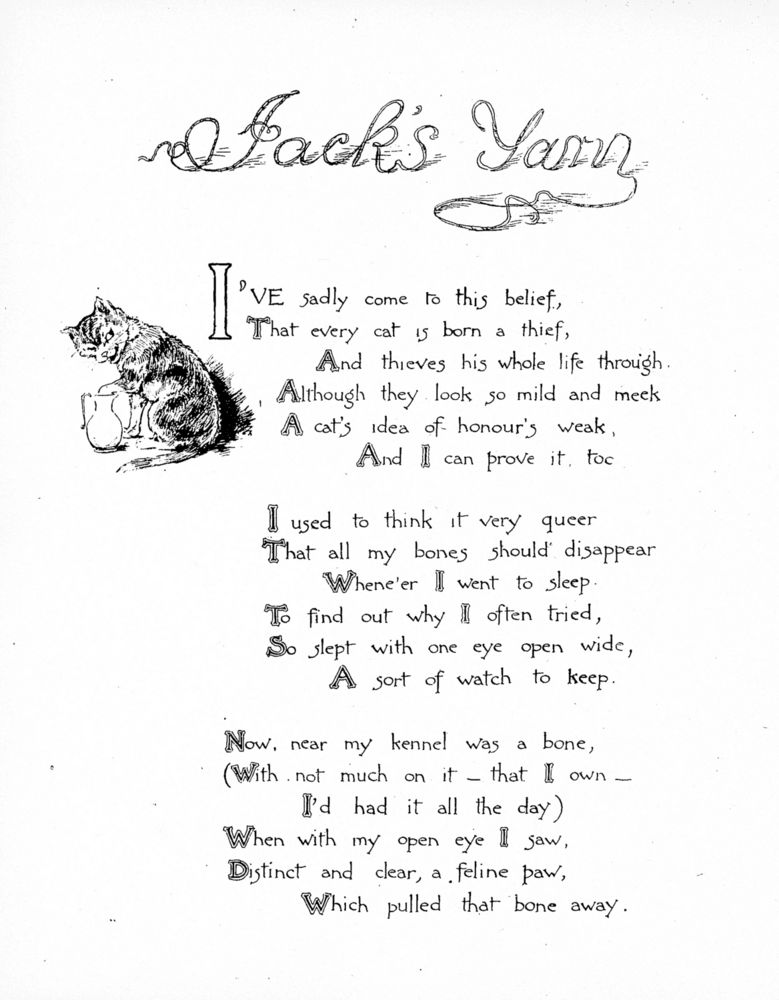 Jack's Yarn
I'VE sadly come to this belief,
That every cat is born a thief,
And thieves his whole life through.
Although they look so mild and meek
A cat's idea of honour's weak,
And I can prove it, too
I used to think it very queer
That all my bones should disappear
Whene'er I went to sleep.
To find out why I often tried,
So slept with one eye open wide,
A sort of watch to keep.
Now, near my kennel was a bone,
(With not much on it – that I own –
I'd had it all the day)
When with my open eye I saw,
Distinct and clear, a feline paw,
Which pulled that bone away.